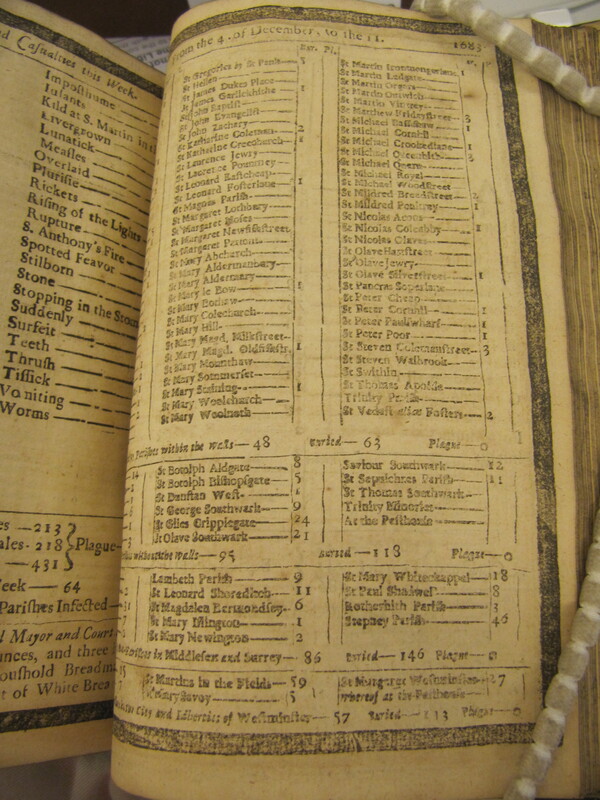 nd Casualties this Week.
Imposthume
Infants
Kild at S. Martin in the
Livergrown
Lunatick
Measles
Overlaid
Plurisie
Rickets
Rising of the Lights
Rupture
S. Anthony's Fire
Spotted Feavor
Stilborn
Stone
Stopping in the Stom
Suddenly
Surfeit
Teeth
Thrush
Tissick
Vomiting
Worms
es —213
ales- 218 } Plague
—431
eek — 64
Parishes Infected
d Mayor and Court
unces, and three
oushold Bread m
t of White Brea
From the 4. of December, to the 11. 1683
Bur. Pl.
St Gregories by St Pauls 3
St Hellen
St James Dukes Place 1
St James Garlickhithe
St John Baptist
St John Evangelist
St John Zachary
St Katharine Coleman 2
St Katharine Creechurch 1
St Laurence Jewry
St Laurence Pountney
St Leonard Eastcheap
St Leonard Fosterlane 1
St Magnus Parish
St Margaret Lothbury
St Margaret Moses
St Margaret Newfishstreet
St Margaret Pattons
St Mary Abchurch
St Mary Aldermanbury
St Mary Aldermary
St Mary le Bow 1
St Mary Bothaw
St Mary Colechurch
St Mary Hill
St Mary Magd. Milkstreet
St Mary Magd. Oldfishstr. 1
St Mary Mounthaw
St Mary Sommerset
St Mary Staining 1
St Mary Woolchurch
St Mary Woolnoth
St Martin Ironmongerlane 1
St Martin Ludgate
St Martin Orgars
St Martin Outwich
St Martin Vintrey
St Matthew Fridaystreet 3
St Michael Bassishaw 1
St Michael Cornhil
St Michael Crookedlane 1
St Michael Queenhith 3
St Michael Quern
St Michael Royal
St Michael Woodstreet
St Mildred Breadstreet 2
St Mildred Poultrey 1
St Nicolas Acons
St Nicolas Coleabby 1
St Nicolas Olaves
St Olave Hartstreet
St Olave Jewry
St Olave Silverstreet 1
St Pancras Soperlane
St Peter Cheap
St Peter Cornhil 1
St Peter Paulswharf 1
St Peter Poor 1
St Steven Colemanstreet 3
St Steven Walbrook
St Swithin
St Thomas Apostle
Trinity Parish
St Vedast alias Fosters 2
Parishes within the walls — 48 Buried — 63 Plague — 0
St Botolph Aldgate 8
St Botolph Bishopsgate 5
St Dunstan West 1
St George Southwark 9
St Giles Cripplegate 24
St Olave Southwark 21
Saviour Southwark 12
St Sepulchres Parish 11
St Thomas Southwark
Trinity Minories
At the Pesthouse
without the walls — 95 Buried — 118 Plague — 0
Lambeth Parish 9
St Leonard Shoreditch 11
St Magdalen Bermondsey 6
St Mary Islington 1
St Mary Newington 2
St Mary Whitechappel 18
St Paul Shadwel 8
Rotherhith Parish 3
Stepney Parish 46
in Middlesex and Surrey — 86 Buried — 146 Plague — 0
St Martins in the Fields — 59
St Mary Savoy 5
St Margaret Westminster 27
whereof at the Pesthouse
City and Liberties of Westminster — 57 Buried — 113 Plague — 0